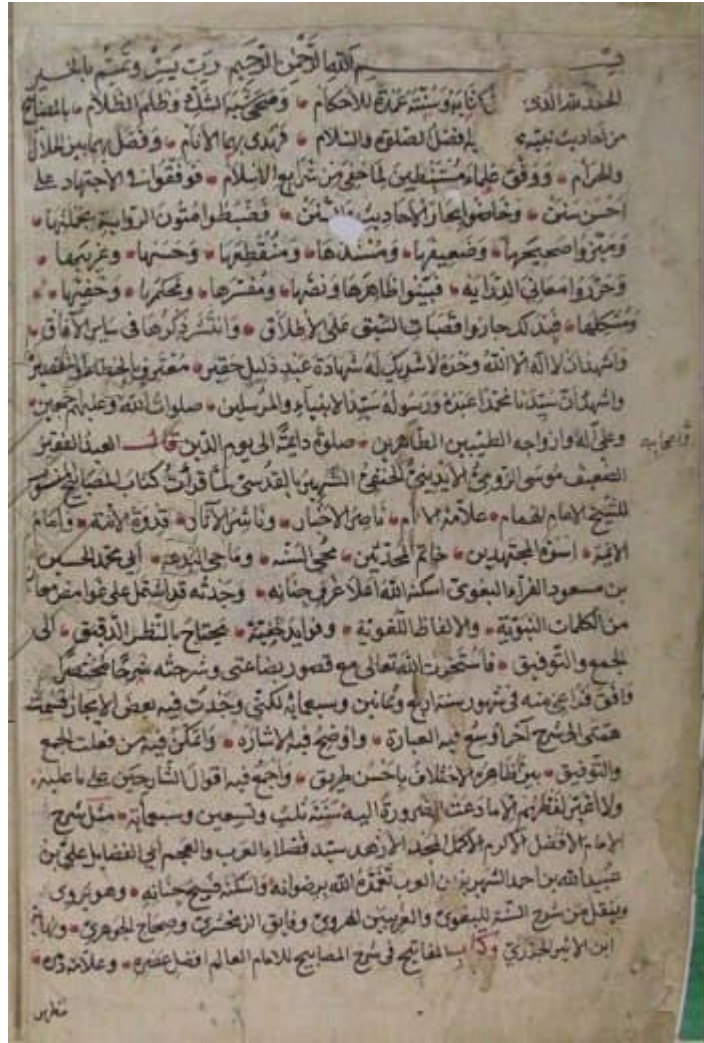 بسم الله الرحمن الرحيم رب يسر وتمم بالخير
الحمد لله الذي كتابه وسنته عمدة للأحكام ومحى شبه الشك وظلم الظلام بالمصابيح
من أحاديث نبيه أفضل الصلوة والسلام فهدى بهما الأنام وفصل بهما بين الحلال
والحرام ووفق علماء مستنبطين لما خفي من شرايع الاسلام فوفقوا في الاجتهاد على
أحسن سنن وخاضوا بحار الأحاديث والسنن فضبطوا متون الرواية بجملتها
وميزوا صحيحها وضعيفها ومسندها ومنقطعها وحسنها وغريبها
وحرروا معاني الدراية فبينوا ظاهرها ونصها ومفسرها ومحكمها وخفيها
ومشكلها فبذلك حازوا قصبات السبق على الأطلاق وانتشر ذكرها في ساير الآفاق
واشهد ان لا اله الا الله وحده لا شريك له شهادة عبد ذليل حقير معترف بالخطاء والتقصير
واشهد أن سيدنا محمدا عبده ورسوله سيد الانبياء والمرسلين صلوات الله وعليهم أجمعين
وعلى آله وازواجه الطيبين الطاهرين صلوة دايمة الى يوم الدين قال العبد الفقير
وأصحابه
الضعيف موسى الرومي الايديني الحنفي الشهير بالقدسي لما قرأت كتاب المصابيح
للشيخ الامام الهمام علامة الأنام ناصر الأخبار وناشر الآثار قدوة الأمة وإمام
الائمة اسوة المجتهدين خاتم المحدثين محيي السنه وماحي البدعه أبي محمد الحسين
بن مسعود الفراء البغوي اسكنه الله أعلا غرف جنانه وجدته قد اشتمل على غوامض
من الكلمات النبوية والالفاظ اللغوية وفوايد خفية يحتاج بالنظر الدقيق الى
الجمع والتوفيق فاستخرت الله تعالى مع قصور بضاعتي وشرحته شرحا مختصرا
وافق فراغي منه في شهور سنة اربع وثمانين وسبعمائة لكني وجدت فيه بعض الايجاز فسمت
همتي الى شرح آخر اوسع فيه العبارة واوضح فيه الاشاره واتمكن فيه من فعلت الجمع
والتوفيق بين ظاهره الاختلاف باحسن طريق واجمع فيه اقوال الشارحين على ما عليه
ولا اغير لفظهم الا ما دعت الضرورة اليه سنة ثلث وتسعين وسبعمائة مثل شرح
الامام الافضل الاكرم الاكمل المجد الأزهد سيد فضلاء العرب والعجم أبي الفضايل علي بن
عبيد الله بن احمد الشهير بزين العرب تغمده الله برضوانه واسكنه فسيح جنانه وهو يروي
وينقل من شرح السنة للبغوي والغريبين للهروي وفايق الزمخشري وصحاح الجوهري ونهاية
ابن الاثير الجزري وكتاب المفاتيح في شرح المصابيح للامام العالم افضل عصره وعلامة دهره
مظهر